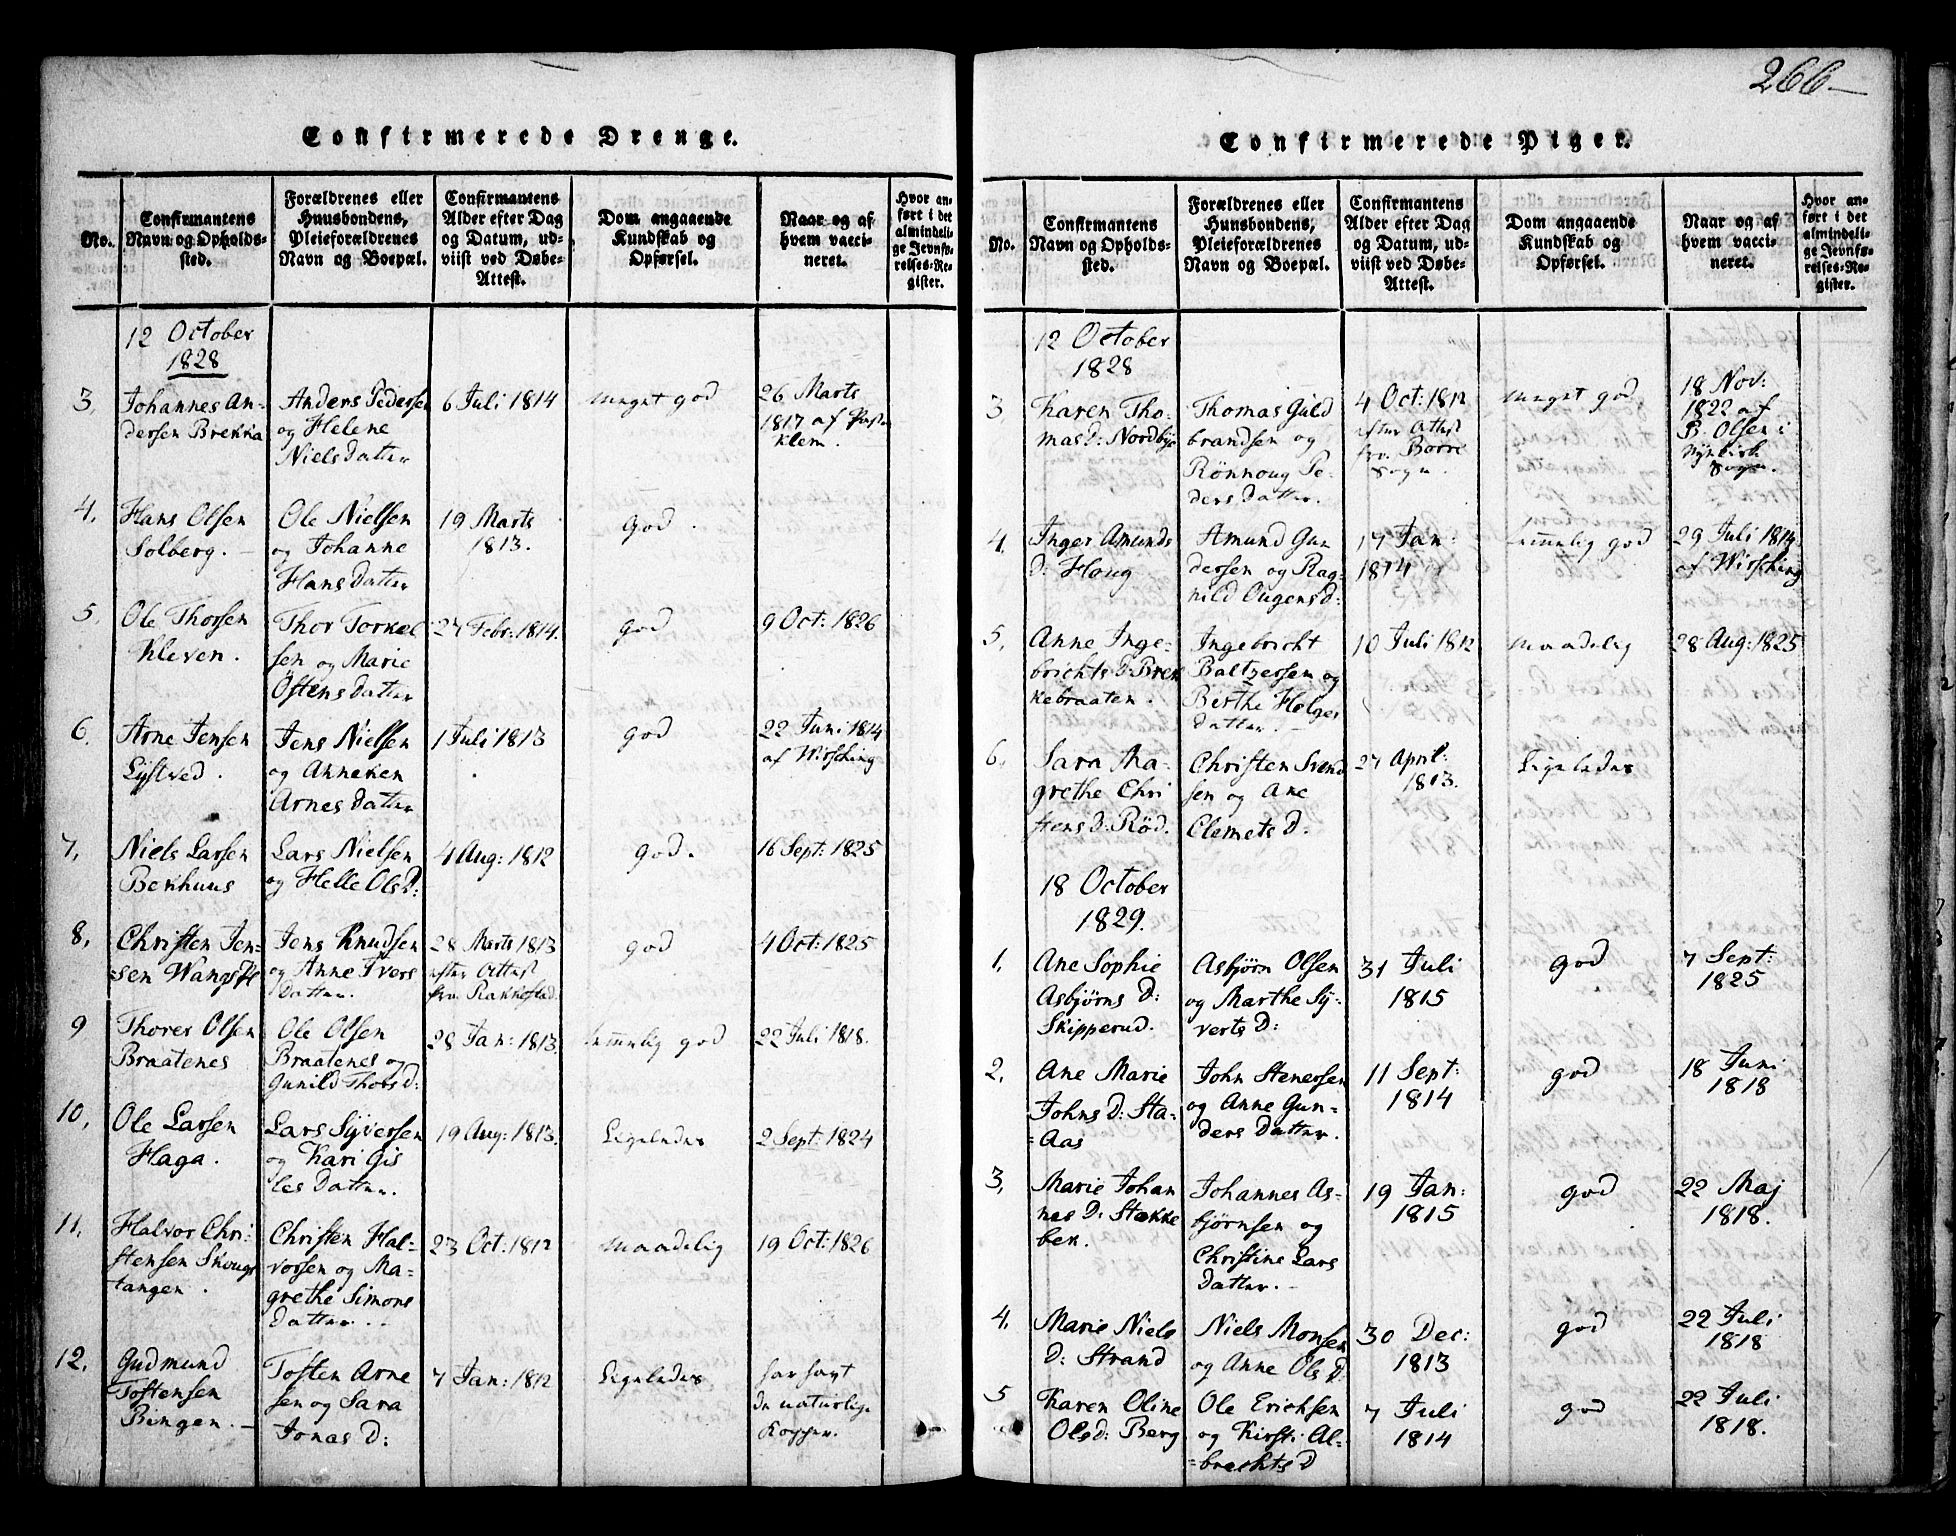 266
Confirmerede Drenge.
No.
Confirmantens
Navn og Opholds-
sted.
Forældrenes eller
Huusbondens,
Pleieforældrenes
Navn og Boepæl.
Confirmantens
Alder efter Dag
og Datum, ud-
viist ved Døbe-
Attest.
Dom angaaende
Kundskab og
Opførsel.
Naar og af
hvem vacci-
neret.
Hvor an-
ført i det
almindeli-
ge Jevnfø-
relses-Re-
gister.
12 October
1828
3,
Johannes An-
dersen Brekka
Anders Pedersen
og Helene
Nielsdatter
6 Juli 1814
meget god
26 Marts
1817 af
Klem.
4,
Hans Olsen
Solberg.
Ole Nielsen
og Johanne
Hansdatter
19 Marts
1813.
god.
5,
Ole Thorsen
Kleven.
Thor Torkel
sen og Marie
Östensdatter
27 Febr: 1814.
god
9 Oct: 1826
6.
Arne Jensen
Lystved.
Jens Nielsen
og Anneken
Arnesdatter
1 Juli 1813
god
22 Juni 1814
af Wirsching
7,
Niels Larsen
Bekhuus
Lars Nielsen
og Helle OlsD:
4 Aug: 1812
god.
16 Sept: 1825
8,
Christen Jen-
sen
Jens Knudsen
og Anne Ivers
Datter.
28 Marts 1813
efter Attest
fra Rakkestad.
god
4 Oct: 1825
9
Thorer Olsen
Braatenes
Ole Olsen
Braatenes og
Gunild ThorsD:
28 Jan: 1813.
temmelig god
22 Juli 1818.
10,
Ole Larsen
Haga.
Lars Syversen
og Kari Gis
les Datter.
19 Aug: 1813.
Ligeledes
2 Sept: 1824
11,
Halvor Chri-
stensen Skougs
tangen.
Christen Hal-
vorsen og Ma-
grethe Simons
Datter.
23 Oct: 1812
maadelig
19 Oct: 1826
12,
Gudmund
Tostensen
Bingen.
Tosten Arne
sen og Sara
Jonas D:
7 Jan: 1812
Ligeledes
har havt
de naturlige
Kopper.
Confirmerede Piger.
No.
Confirmantens
Navn og Opholds-
sted.
Forældrenes eller
Huusbondens,
Pleieforældrenes
Navn og Boepæl.
Confirmantens
Alder efter Dag
og Datum, ud-
viist ved Døbe-
Attest.
Dom angaaende
Kundskab og
Opførsel.
Naar og af
hvem vacci-
neret.
Hvor an-
ført i det
almindeli-
ge Jevnfø-
relses-Re-
gister.
12 October
1828
3
Karen Tho-
masd: Nordbye
Thomas Guld
brandsen og
Rönnoug Pe-
dersdatter.
4 Oct: 1812
efter Attest
fra Borre
Sogn.
meget god
18 Nov:
1822 af
B. Olsen i
Nykirk
Sogn.
4.
Inger Amunds
d: Houg
Amund Gun
dersen og Rag-
nild OugensD:
17 Jan:
1814
temmelig god
29 Juli 1814
af Wirsching
5,
Anne Inge-
brichts D: Brek
kebraaten.
Ingebricht
Baltzersen og
Birthe Holger
datter.
10 Juli 1812
maadelig
28 Aug: 1825
6.
Sara Ma-
grethe Chri
stens D: Röd.
Christen Svend
sen og Ane
Clemets D.
27 April:
1813.
Ligeledes
18 October
1829.
1,
Ane Sophie
Asbjörns D:
Skipperud.
Asbjörn Olsen
og Marthe Sy-
verts D:
31 Juli
1815
god
7 Sept:
1825
2,
Ane Marie
Johns D: Sta-
Aas
John Stenersen
og Anne Gun-
ders Datter.
11 Sept:
1814
god
18 Juni
1818
3,
Marie Johan
nes D: Stække
bek.
Johannes As-
björnsen og
Christine Lars
Datter.
19 Jan:
1815
god
22 Maj
1818.
4.
Marie Niels
D: Strand
Niels Monsen
og Anne Ols D:
30 Dec:
1813
god
22 Juli
1818
5
Karen Oline
Olsd: Berg
Ole Erichsen
og Kirsti Al-
brechts D
7 Juli
1814
god
22 Juli
1818.